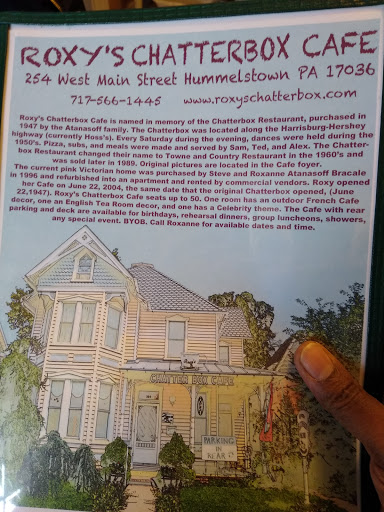 ROXY'S CHATTERBOX CAFE
254 West Main Street Hummelstown PA 17036
717-566-1445 www.roxyschatterbox.com
Roxy's Chatterbox Cafe is named in memory of the Chatterbox Restaurant, purchased in
1947 by the Atanasoff family. The Chatterbox was located along the Harrisburg-Hershey
highway (currently Hoss's). Every Saturday during the evening, dances were held during the
1950's. Pizza, subs, and meals were made and served by Sam, Ted, and Alex. The Chatter-
box Restaurant changed their name to Towne and Country Restaurant in the 1960's and
was sold later in 1989. Original pictures are located in the Cafe foyer.
The current pink Victorian home was purchased by Steve and Roxanne Atanasoff Bracale
in 1996 and refurbished into an apartment and rented by commercial vendors. Roxy opened
her Cafe on June 22, 2004, the same date that the original Chatterbox opened, (June
22,1947). Roxy's Chatterbox Cafe seats up to 50. One room has an outdoor French Cafe
decor, one an English Tea Room decor, and one has a Celebrity theme. The Cafe with rear
parking and deck are available for birthdays, rehearsal dinners, group luncheons, showers,
any special event. BYOB. Call Roxanne for available dates and time.
Roxy's
CHATTER BOX CAFE
PARKING
IN
REAR